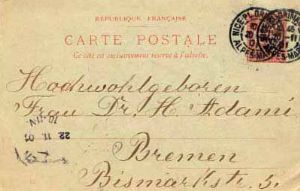 RÉPUBLIQUE FRANÇAISE
CARTE POSTALE
Ce côté est exclusivement réservé à l'adresse.
Hochwohlgeboren
Frau Dr. H. Adami
Bremen
Bismarkstr. 5.
22 11 01
10-11N